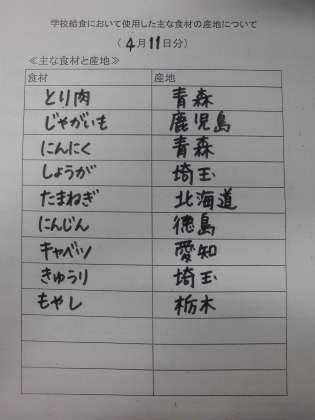 学校給食において使用した主な食材の産地について
(4月11日分)
≪主な食材と産地≫
食材 産地
とり肉 青森
じゃがいも 鹿児島
にんにく 青森
しょうが 埼玉
たまねぎ 北海道
にんじん 徳島
キャベツ 愛知
きゅうり 埼玉
もやし 栃木